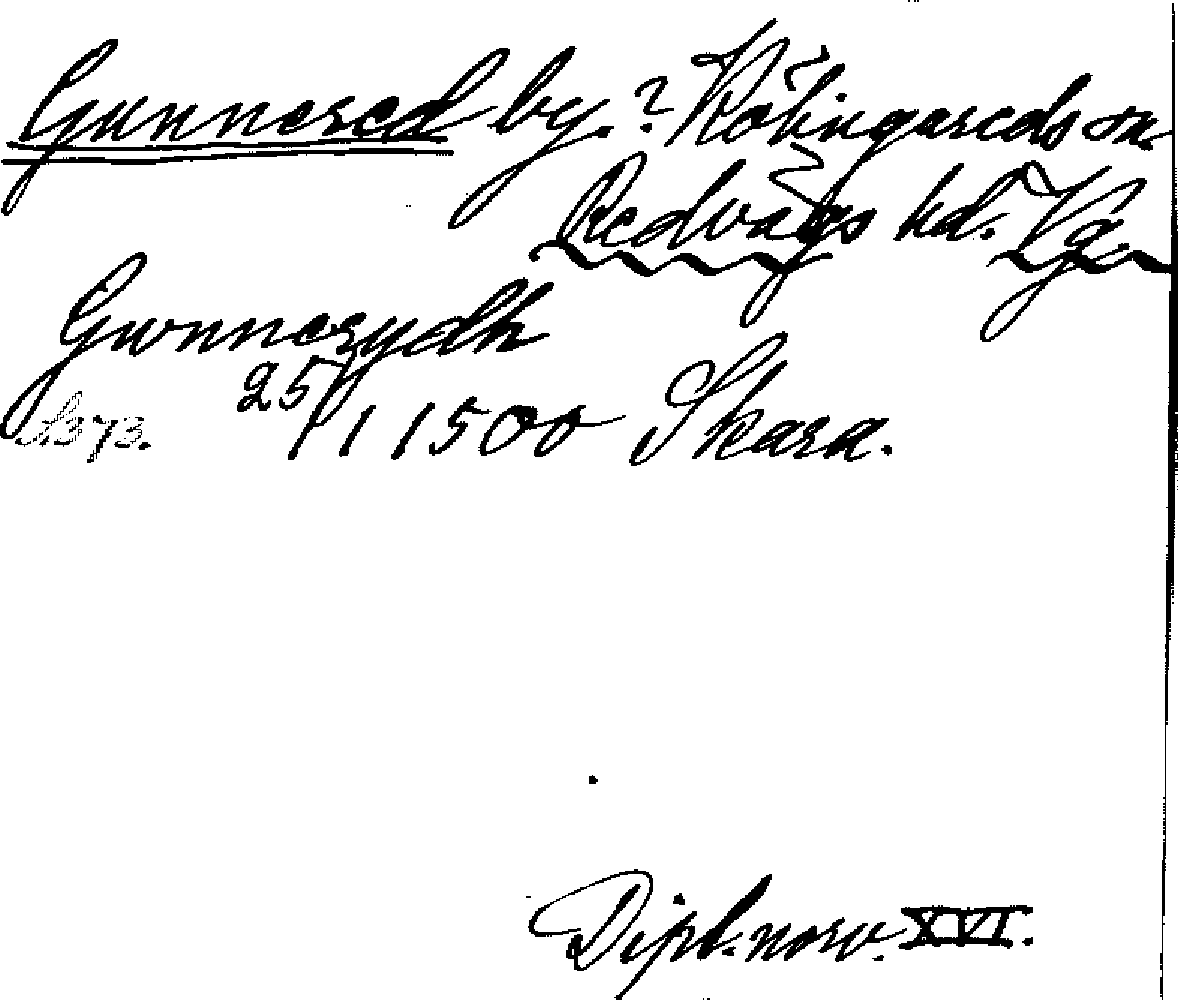 Gunnered by. ? Kölingareds sn.
Redvägs hd. Vg.
Gwnnerydh
S. 373. 25/11 1500 Skara.
Dipl. norv. XVI.